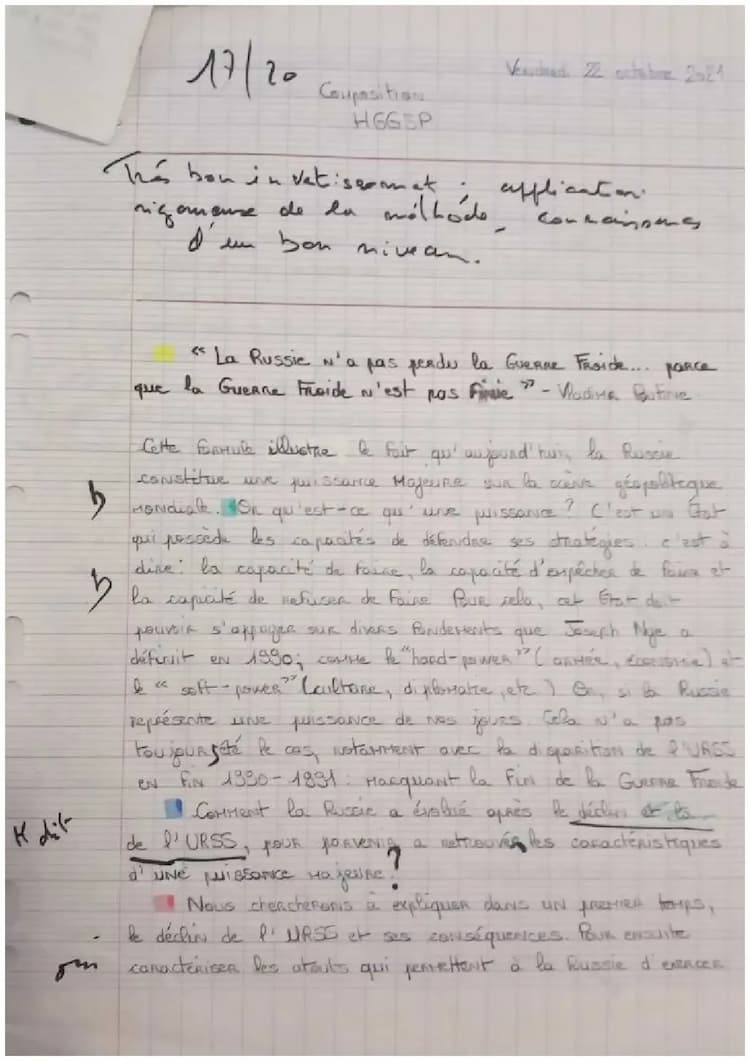 17/20
Vendredi 22 octobre 2021
Composition
HGGSP
Très bon investissement ; application
rigoureuse de la méthode, connaissances
d'un bon niveau.
« La Russie n'a pas perdu la Guerre Froide... parce
que la Guerre Froide n'est pas finie » - Vladimir Poutine
Cette formule illustre le fait qu'aujourd'hui, la Russie
constitue une puissance majeure sur la scène géopolitique
mondiale. Or qu'est-ce qu'une puissance ? C'est un État
b
qui possède les capacités de défendre ses stratégies : c'est à
dire : la capacité de faire, la capacité d'empêcher de faire et
b
la capacité de refuser de faire. Pour cela, cet État doit
pouvoir s'appuyer sur divers fondements que Joseph Nye a
définit en 1990; comme le "hard-power" (armée, économie) et
le « soft-power" (culture, diplomatie, etc) Or, si la Russie
représente une puissance de nos jours. Cela n'a pas
toujours été le cas, notamment avec la disparition de l'URSS
en fin 1990-1991 : marquant la fin de la Guerre Froide
Comment la Russie a évolué après le déclin et la
de l'URSS, pour parvenir a retrouver les caractéristiques
d'une puissance majeure ?
Nous chercherons à expliquer dans un premier temps,
le déclin de l'URSS et ses conséquences. Pour ensuite
caractériser les atouts qui permettent à la Russie d'exercer